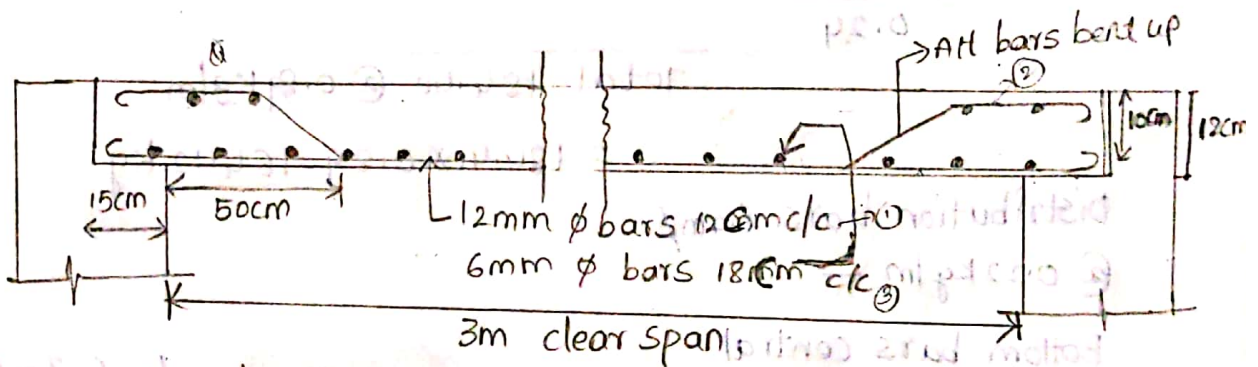 Alt bars bent up
②
10cm
12cm
15cm
50cm
12mm ϕ bars 12cm c/c ①
6mm ϕ bars 18cm c/c ③
3m clear span